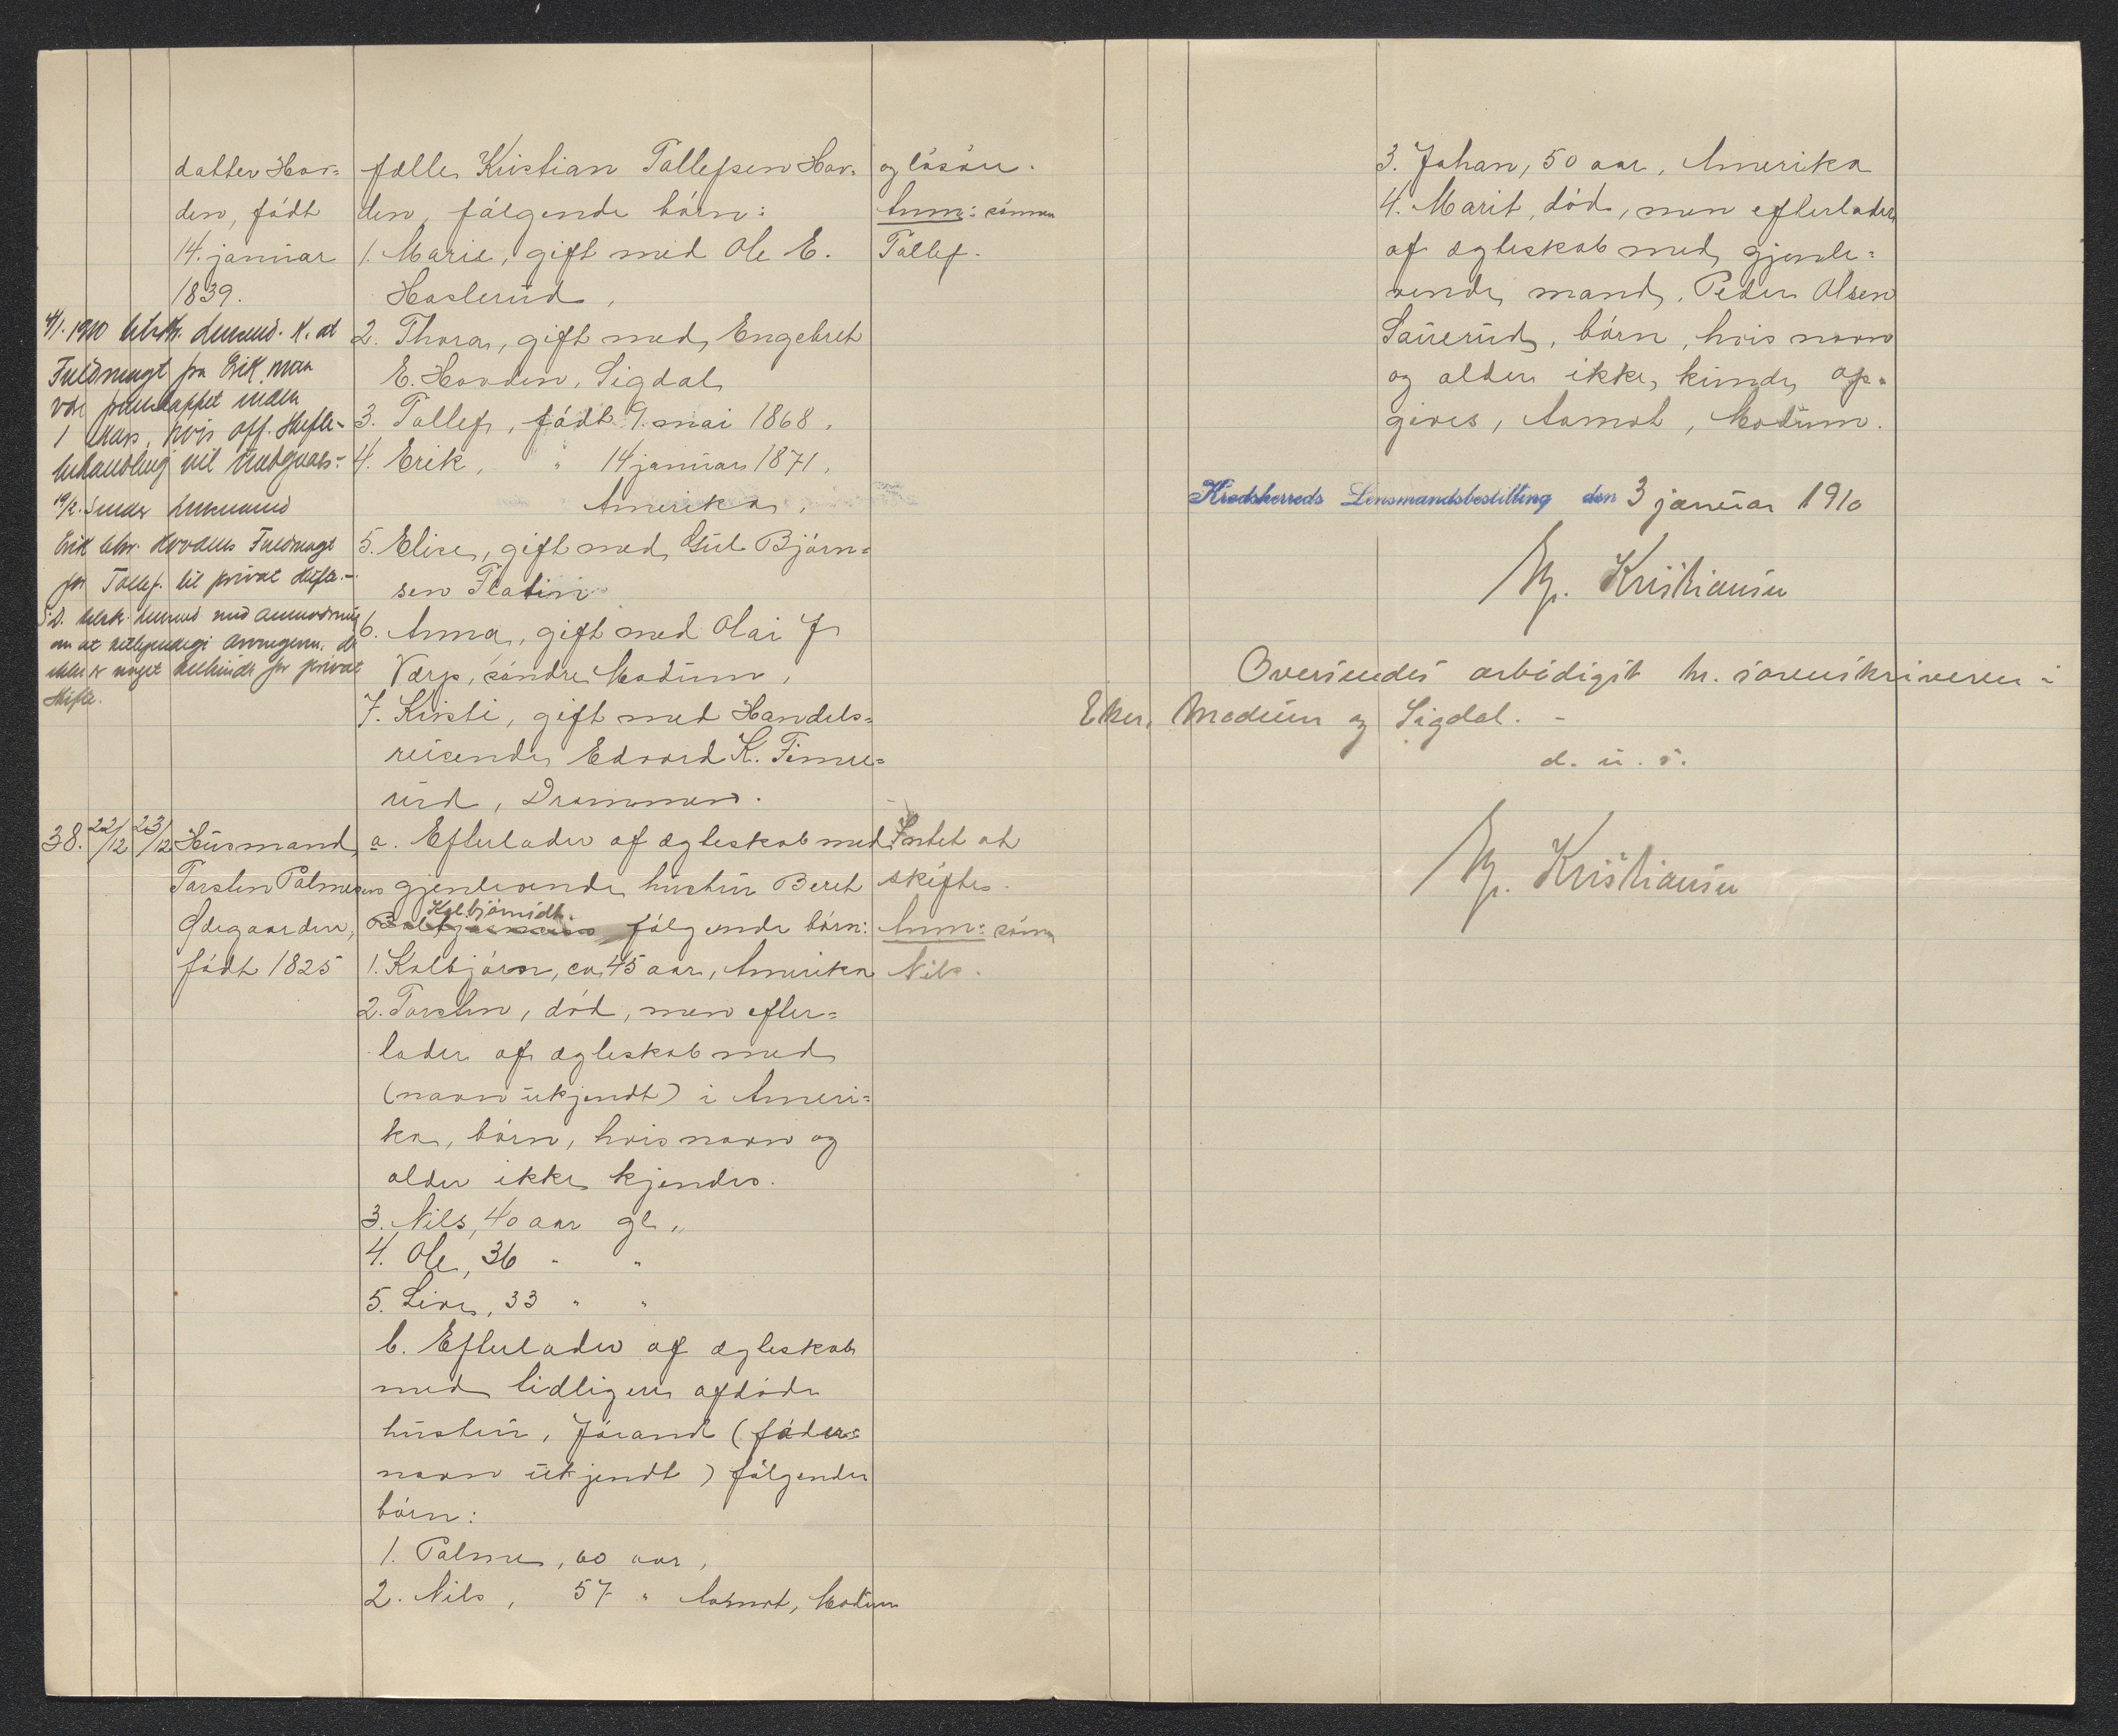 datter Hov=
den, födt
14. januar
1839.
fælle Kristian Tollefsen Hov=
den, følgende børn:
1. Marie, gift med Ole E.
Haslerud,
2. Thora, gift med Engebret
E. Hovden, Sigdal
3. Tollef, født 9. mai 1868,
4. Erik, " 14 januar 1871,
Amerika,
5. Elise, gift med Gul Bjørn=
sen Flatin
6. Anna, gift med Olai J
Værp, söndre Modum,
7. Kirsti, gift med Handels=
reisende Edvard K. Finne=
rud, Drammen.
og løsøre.
Anm: sønnen
Tollef.
4/1. 1910 lensmd. K. at
Fuldmagt fra Erik maa
være fremskaffet inden
1 Mars, hvis off. Skifte-
behandling vil undgaaes.-
19/2. Sender Lensmand
Erik Chr. Hovdens Fuldmagt
for Tollef. til privat Skifte.-
S.D. med Anmodning
om at
ikke er noget til hinder for privat
Skifte.
38. 22/12 23/12 Husmand
Torsten Palmesen
Ødegaarden,
født 1825
a. Efterlader af ægteskab med
gjenlevende hustru Beret
Kolbjørnsdt.
følgende børn:
1. Kolbjørn, ca 45 aar, Amerika
2. Torsten, död, men efter=
lader af ægteskab med
(navn ukjendt) i Ameri=
ka, børn, hvis navn og
alder ikke kjendes.
3. Nils, 40 aar gl.,
4. Ole, 36 " "
5. Live, 33 " "
b. Efterlader af ægteskab
med tidligere afdøde
hustru, Jørand (faders
navn ukjendt) følgende
børn:
1. Palme, 60 aar,
2. Nils, 57 " Aamot, Modum
Intet at
skiftes.
Anm: sønn
Nils.
3. Johan, 50 aar, Amerika
4. Marit, död, men efterlader
af ægteskab med gjenle=
vende mand, Peder Olsen
Sauerud, børn, hvis navn
og alder ikke kunde op=
gives, Aamot, Modum.
Krødsherreds Lensmandsbestilling den 3 januar 1910
Kristiansen
Oversendes ærbødigst hr. sorenskriveren i
Eker, Modum og Sigdal. -
d. u. s.
Kristiansen